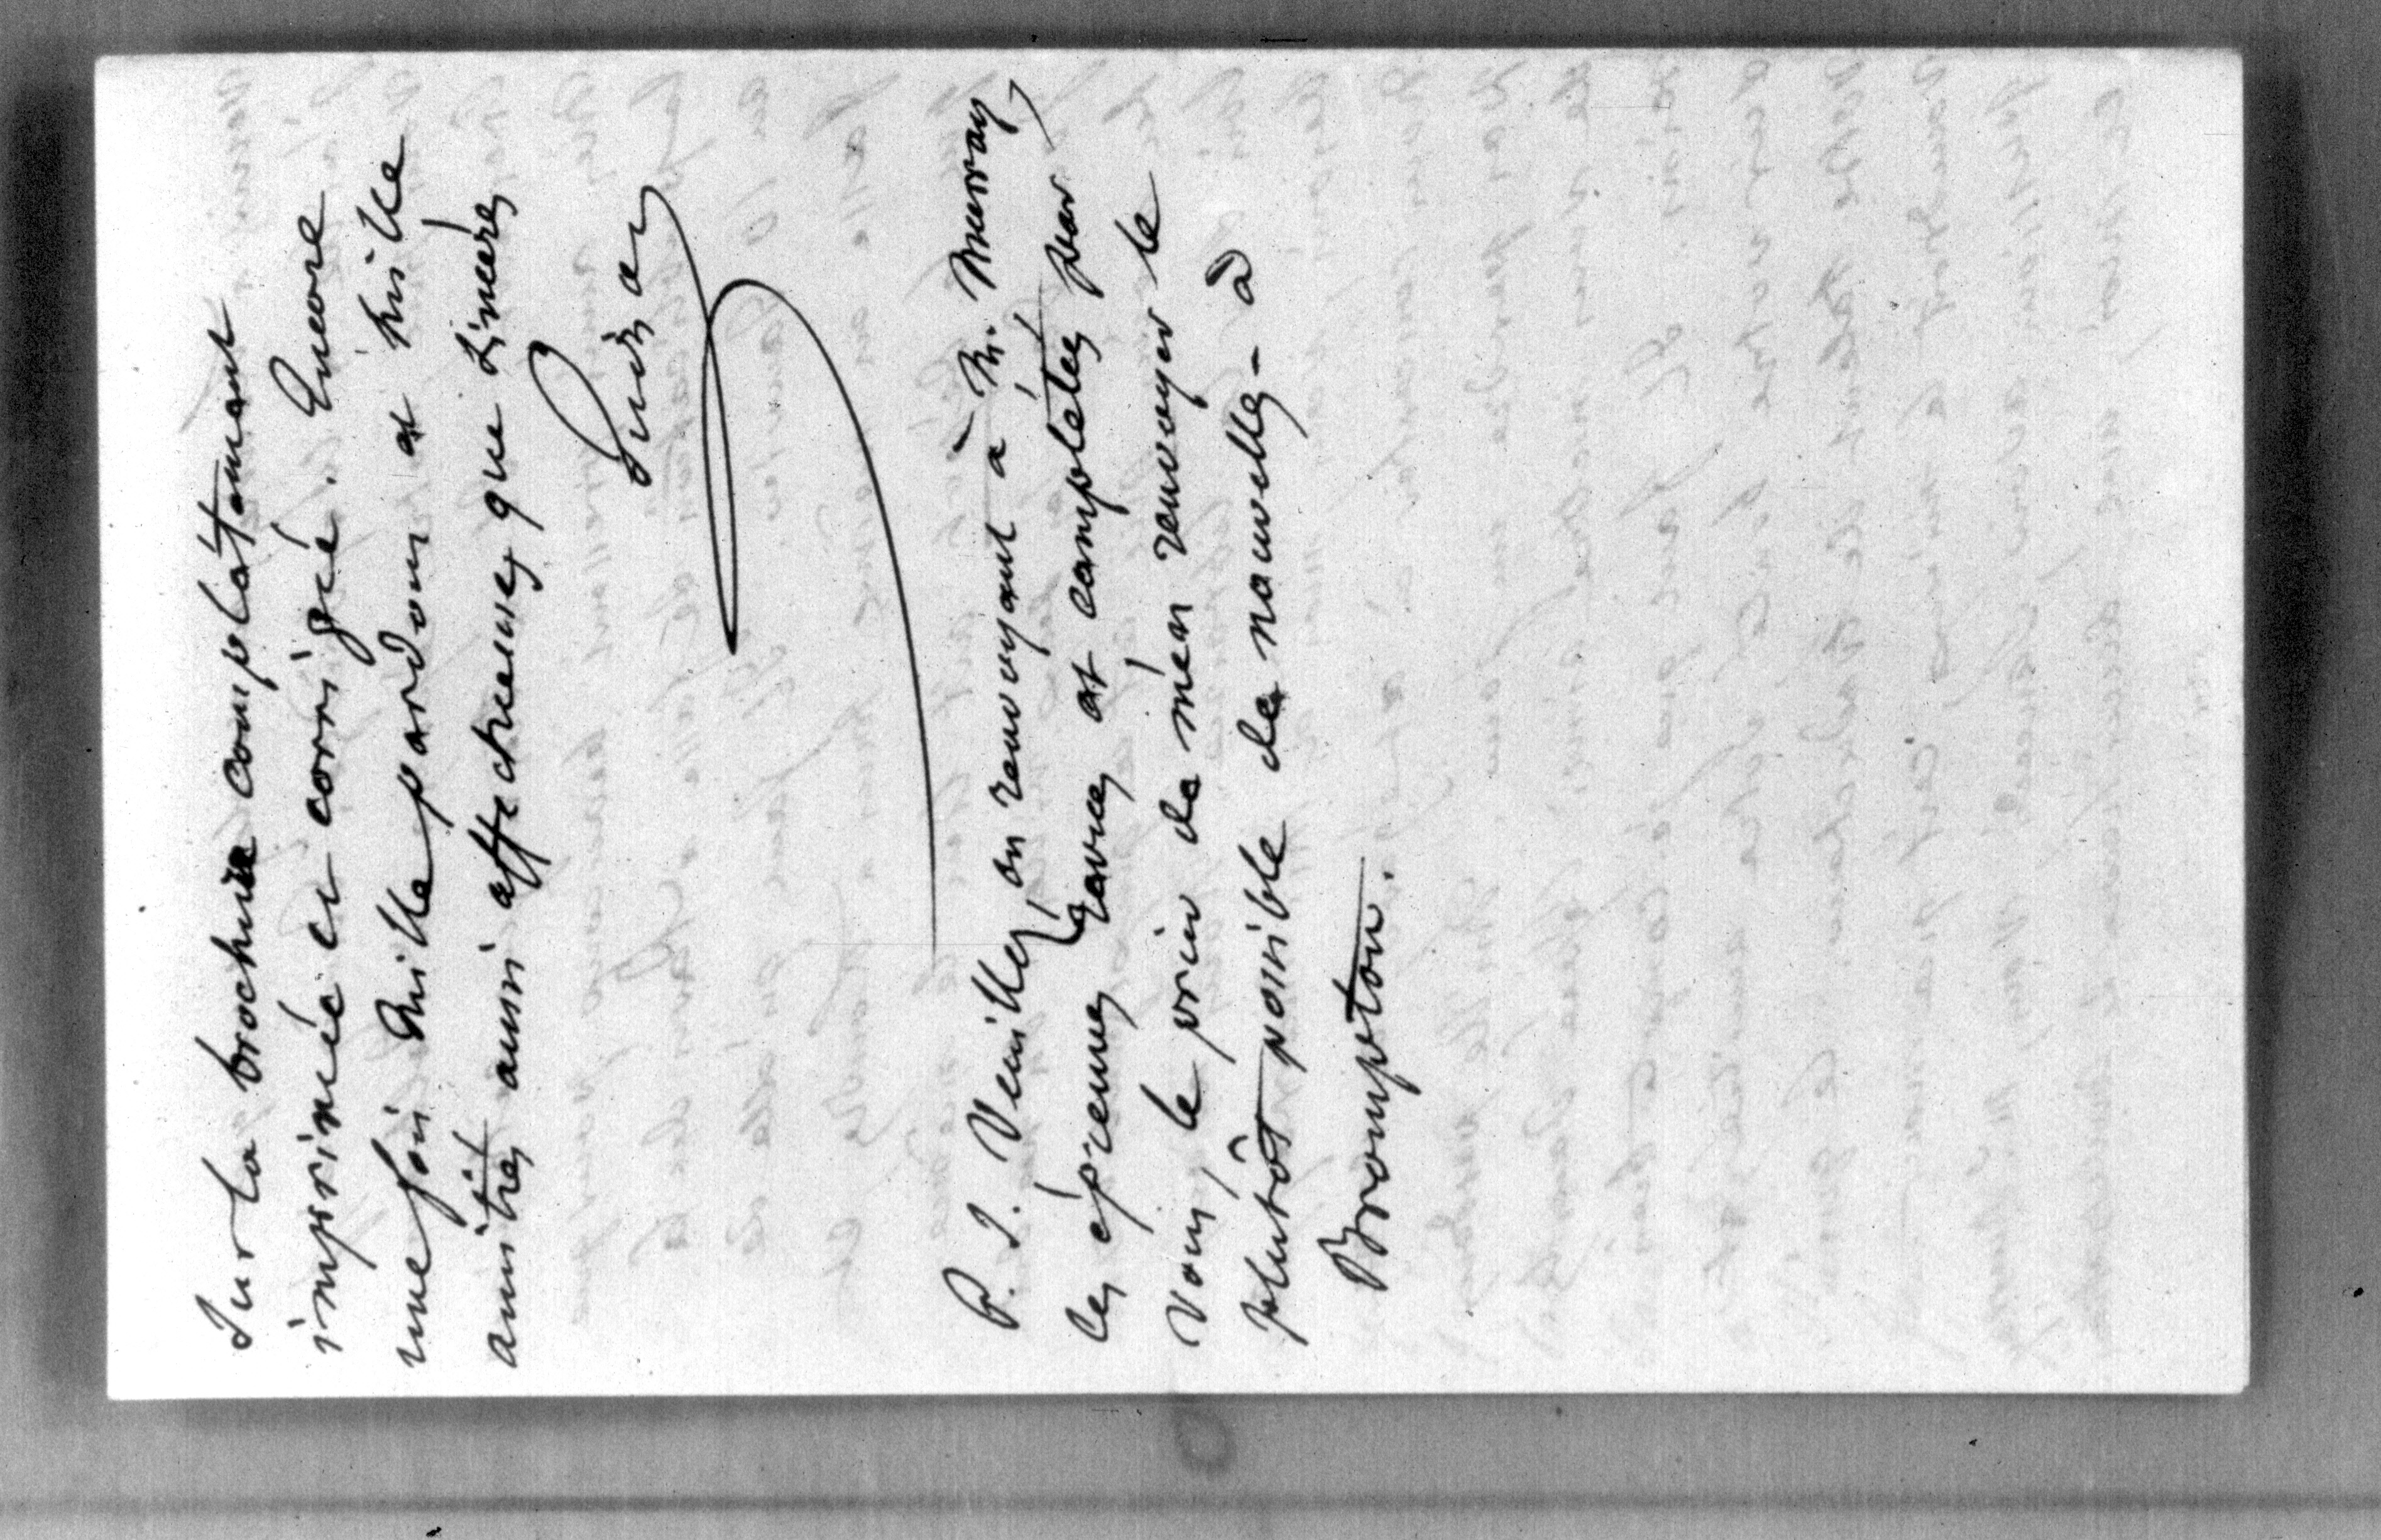 Sur la brochure complètement
imprimée et corrigée. Encore
une fois mille pardons et mille
amitiés aussi affectueuses que sincères
P. S. Veuillez en renvoyant à M. Murray
les épreuves revues et complétées par
vous, le prier de m'en renvoyer le
plutôt possible de nouvelles à
Brompton.